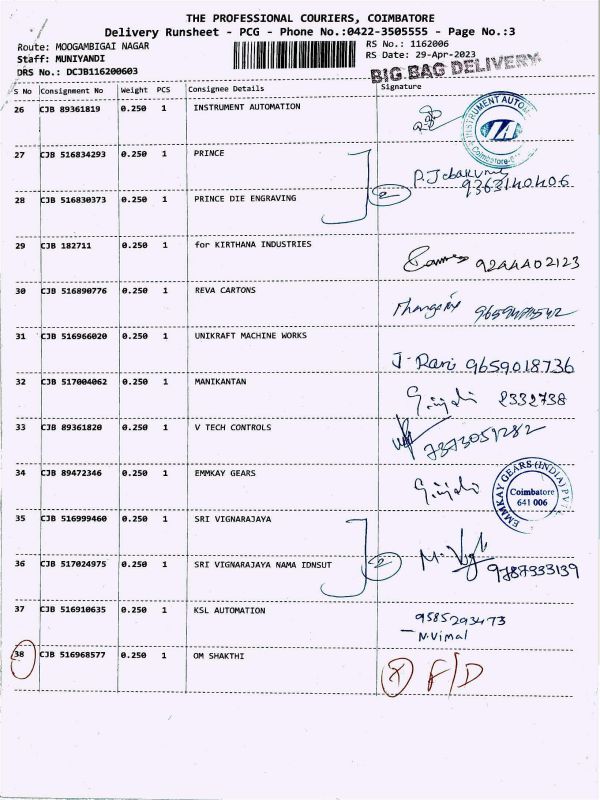 THE PROFESSIONAL COURIERS, COIMBATORE
Delivery Runsheet - PCG - Phone No.:0422-3505555 - Page No.:3
Route: MOOGAMBIGAI NAGAR RS No.: 1162006
Staff: MUNIYANDI RS Date: 29-Apr-2023
DRS No.: DCJB116200603 BIG BAG DELIVERY
S No Consignment No Weight PCS Consignee Details Signature
26 CJB 89361819 0.250 1 INSTRUMENT AUTOMATION
INSTRUMENT AUTOM
IA
Coimbatore
27 CJB 516834293 0.250 1 PRINCE
P. Jebakumar
9363140406
2
28 CJB 516830373 0.250 1 PRINCE DIE ENGRAVING
29 CJB 182711 0.250 1 for KIRTHANA INDUSTRIES
9244402123
30 CJB 516890776 0.250 1 REVA CARTONS
31 CJB 516966020 0.250 1 UNIKRAFT MACHINE WORKS
J. Rani 9659018736
32 CJB 517004062 0.250 1 MANIKANTAN
2332738
33 CJB 89361820 0.250 1 V TECH CONTROLS
7373051282
34 CJB 89472346 0.250 1 EMMKAY GEARS
EMMKAY GEARS (INDIA) PVT
Coimbatore
641 006
35 CJB 516999460 0.250 1 SRI VIGNARAJAYA
2
36 CJB 517024975 0.250 1 SRI VIGNARAJAYA NAMA IDNSUT
9787333139
37 CJB 516910635 0.250 1 KSL AUTOMATION
9585293473
N.Vimal
38 CJB 516968577 0.250 1 OM SHAKTHI
X F/D